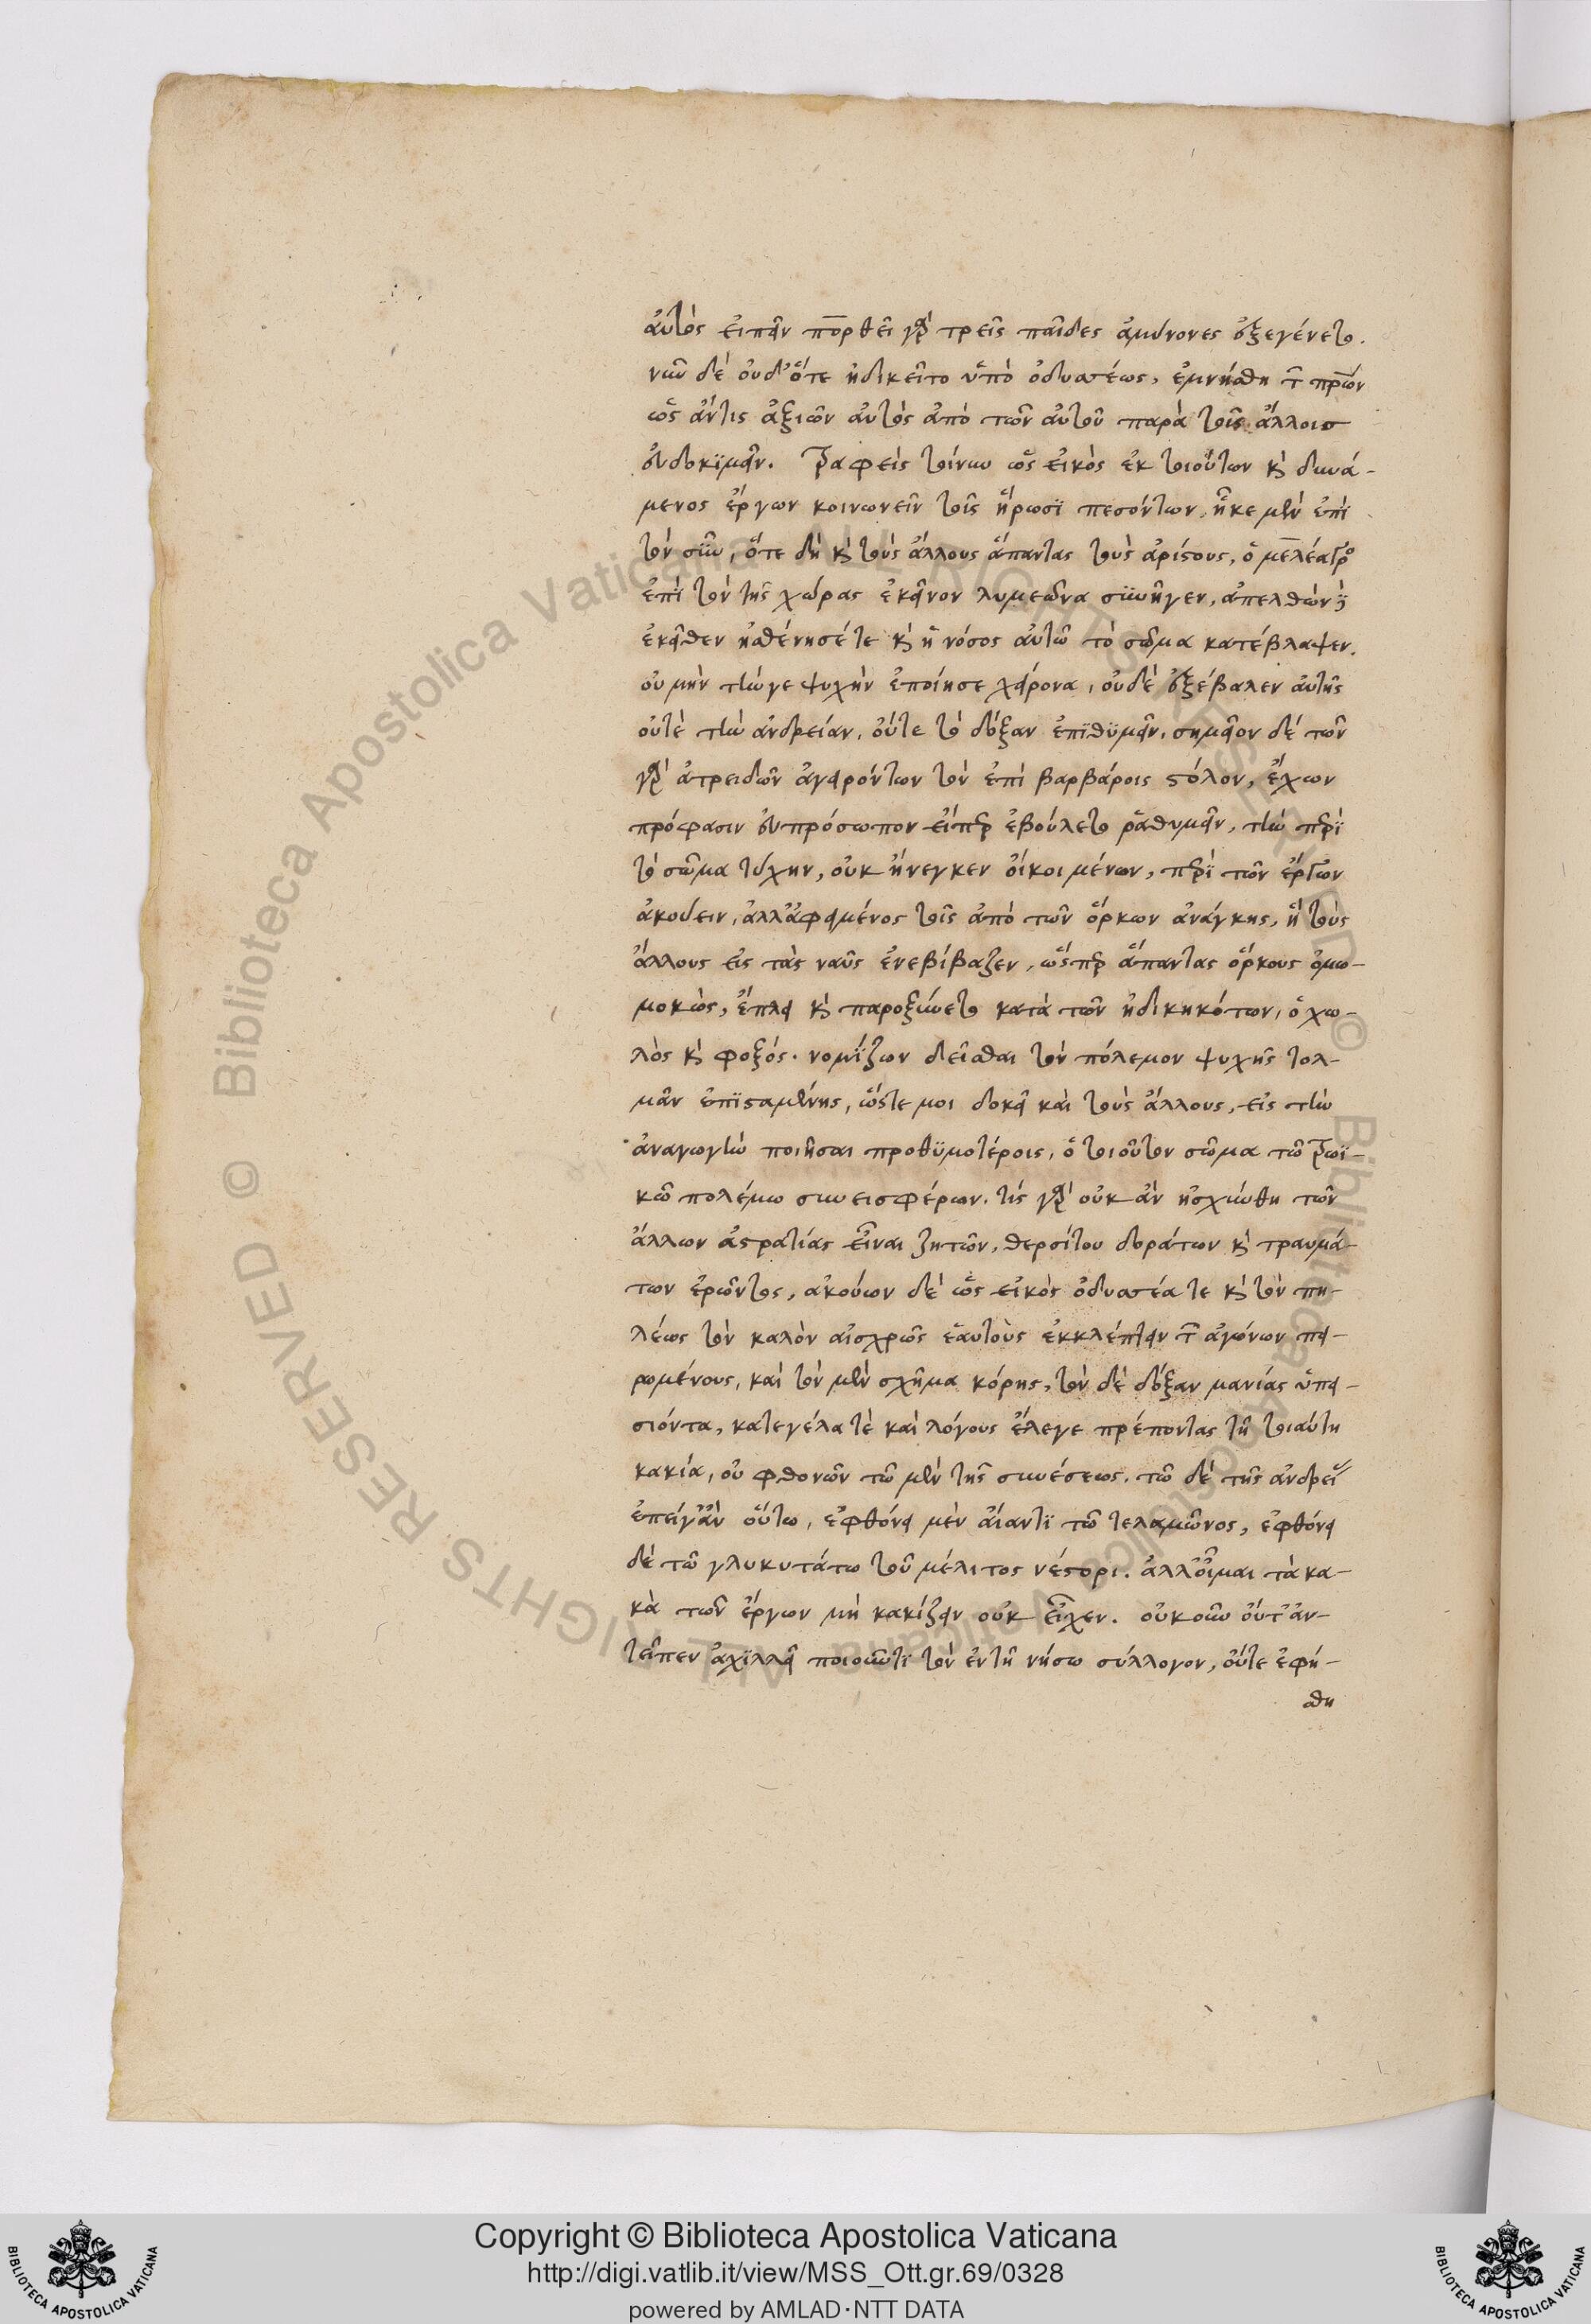 αὐτὸς εἰπεῖν πορθεῖ γὰρ τρεῖς παῖδες ἀμύμονες ἐξεγένετο.
νῦν δὲ οὐδ' ὅτε ἠδικεῖτο ὑπὸ ὀδυσσέως, ἐμνήσθη τῶν
ὡς ἄν τις ἀξιῶν αὐτὸς ἀπὸ τῶν αὐτοῦ παρὰ τοῖς ἄλλοις
εὐδοκιμεῖν. τραφεὶς τοίνυν ὡς εἰκὸς ἐκ τοιούτων καὶ δυνά-
μενος ἔργων κοινωνεῖν τοῖς ἥρωσϊ πεσόντων, ἧκε μὲν ἐπὶ
τὸν σῦν, ὅτε δὴ καὶ τοὺς ἄλλους ἅπαντας τοὺς ἀρίστους, ὁ μελέαγρος
ἐπὶ τὸν τῆς χώρας ἐκεῖνον λυμεῶνα συνῆγεν, ἀπελθὼν
ἐκεῖθεν ἠσθένησέ τε καὶ ἡ νόσος αὐτῶ τὸ σῶμα κατέβλαψεν.
οὐ μὴν τήν γε ψυχὴν ἐποίησε χείρονα, οὐδὲ ἐξέβαλεν αὐτῆς
οὔτε τὴν ἀνδρείαν, οὔτε τὸ δόξαν ἐπϊθϋμεῖν. σημεῖον δέ τῶν
γὰρ ἀτρειδῶν ἀγειρόντων τὸν ἐπὶ βαρβάροις στόλον, ἔχων
πρόφασιν εὐπρόσωπον εἴπερ ἐβούλετο ῥαθυμεῖν, τὴν περὶ
τὸ σῶμα τύχην, οὐκ ἤνεγκεν οἴκοι μένων, περὶ τῶν ἔργων
ἀκούειν, ἀλλ' ἀφειμένος τοῖς ἀπὸ τῶν ὅρκων ἀνάγκης, ἣ τοὺς
ἄλλους εἰς τὰς ναῦς ἐνεβίβαζεν, ὥσπερ ἅπαντας ὅρκους ὀμω-
μοκὼς, ἔπλει καὶ παροξύνετο κατὰ τῶν ἠδικηκότων, ὁ χω-
λὸς καὶ φοξός. νομίζων δεῖσθαι τὸν πόλεμον ψυχῆς τολ-
μᾶν ἐπϊσταμένης, ὥστε μοι δοκεῖ καὶ τοὺς ἄλλους, εἰς τὴν
ἀναγωγὴν ποιῆσαι προθϋμοτέροις, ὁ τοιοῦτον σῶμα τῶ τρωϊ-
κῶ πολέμω συνεισφέρων. τίς γὰρ οὐκ ἂν ἠσχύνθη τῶν
ἄλλων ἀστρατίας εἶναι ζητῶν, θερσίτου δοράτων καὶ τραυμά-
των ἐρῶντος, ἀκούων δὲ ὡς εἰκὸς ὀδυσσέα τε καὶ τὸν πη-
λέως τὸν καλὸν αἰσχρῶς ἑαυτοὺς ἐκκλέπτειν τῶν ἀγώνων πει-
ρωμένους, καὶ τὸν μὲν σχῆμα κόρης, τὸν δὲ δόξαν μανίας ὑπει-
σιόντα, κατεγέλα τὲ καὶ λόγους ἔλεγε πρέποντας τῆ τοιαύτη
κακία, οὐ φθονῶν τῶ μὲν τῆς συνέσεως. τῶ δὲ τῆς ἀνδρείας
ἐπεί γ' ἂν οὕτω, ἐφθόνει μὲν αἴαντϊ τῶ τελαμῶνος, ἐφθόνει
δὲ τῶ γλυκυτάτω τοῦ μέλιτος νέστορι. ἀλλ' οἶμαι τὰ κα-
κὰ τῶν ἔργων μὴ κακίζειν οὐκ εἶχεν. οὐκοῦν οὔτ' ἀν-
τεῖπεν ἀχϊλλεῖ ποιοῦντϊ τὸν ἐν τῆ νήσω σύλλογον, οὔτε ἐφή-
σθη
Copyright © Biblioteca Apostolica Vaticana
http://digi.vatlib.it/view/MSS_Ott.gr.69/0328
powered by AMLAD·NTT DATA